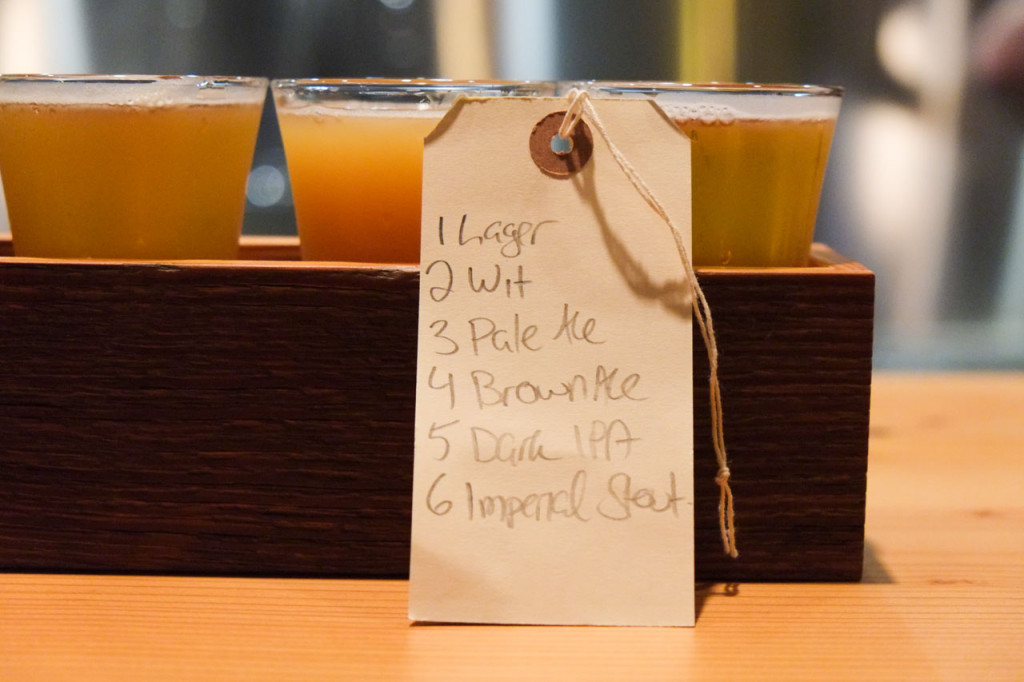 1 Lager
2 Wit
3 Pale Ale
4 Brown Ale
5 Dark IPA
6 Imperial Stout.